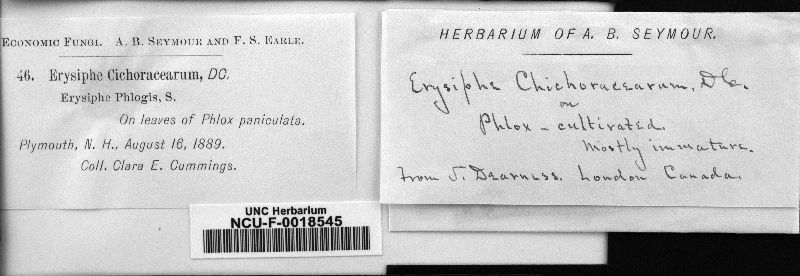 ECONOMIC FUNGI. A. B. SEYMOUR AND F. S. EARLE.
46. Erysiphe Cichoracearum, DC.
Erysiphe Phlogis, S.
On leaves of Phlox paniculata.
Plymouth, N. H., August 16, 1889.
Coll. Clara E. Cummings.
UNC Herbarium
NCU-F-0018545
HERBARIUM OF A. B. SEYMOUR.
Erysiphe Chichoracearum, DC.
on
Phlox - cultivated.
Mostly immature.
From J. Dearness. London Canada.